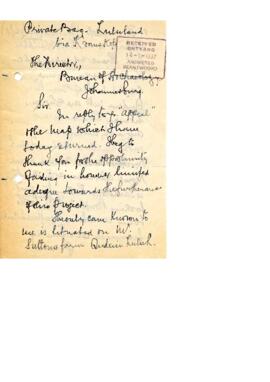 Private Bag. Zululand
via
RECEIVED
ONTVANG
1937
ANSWERED
BEANTWOORD
The Director,
Bureau of Archaeology,
Johannesburg.
Sir
In reply to yr "appeal"
& the map which I have
today returned. I beg to
thank you for the opportunity
in however limited
a degree towards the
of the Project.
The only cave known to
me is situated on Mr.
Suttons farm